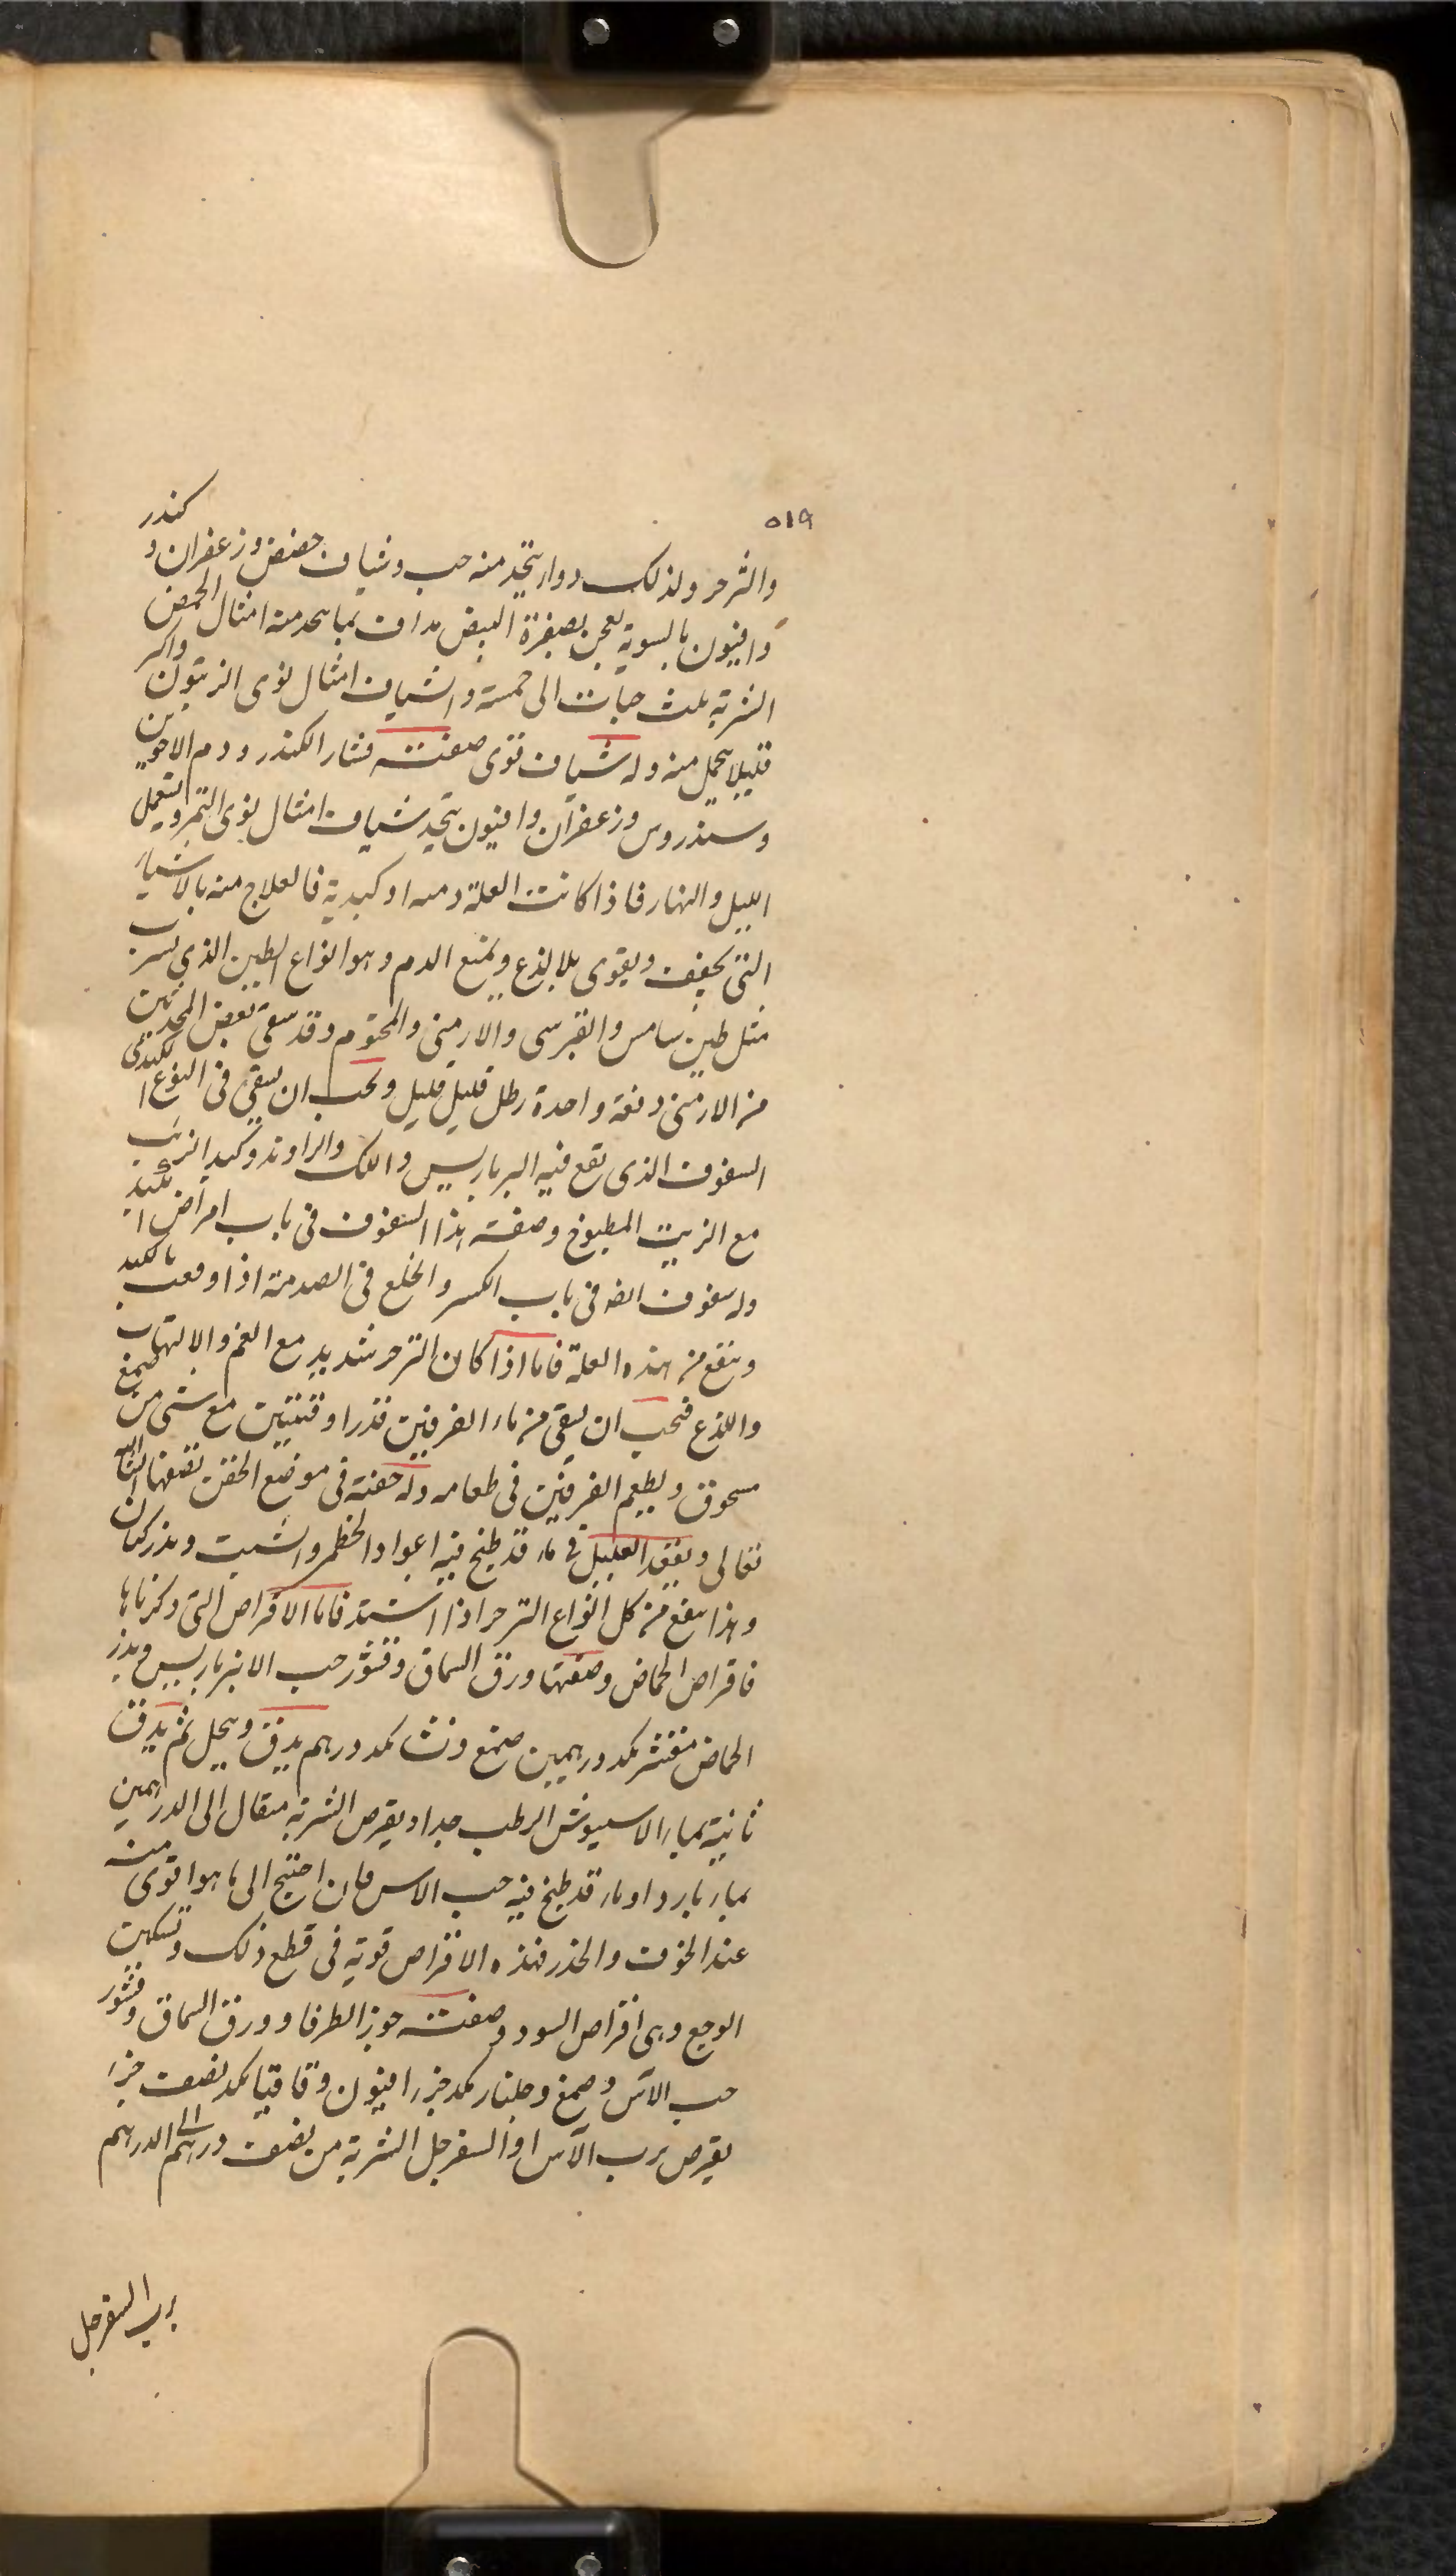 ٥١٩
والزحر ولذلك دواء يتخذ منه حب وشياف حضض وزعفران و كندر
وافيون بالسوية يعجن بصفرة البيض مداف بما يتخذ منه امثال الحمص
الشربة ثلث حبات الى خمسة والشياف امثال نوى الزيتون واكبر
قليلا يتحمل منه وله شياف قوى صفته قشار الكندر ودم الاخوين
وسندروس وزعفران وافيون يتخذ شياف امثال نوى التمر ويستعمل
الليل والنهار فاذا كانت العلة دمية او كبدية فالعلاج منه بالاشياء
التى تجفف ويقوى بلا لذع ويمنع الدم وهو انواع الطين الذي يشرب
مثل طين سامس والقبرسى والارمنى والمختوم وقد سقى بعض المحدثين
من الارمنى دفعة واحدة رطل قليل قليل ويجب ان يسقى فى النوع الكبدى
السفوف الذى تقع فيه البرباريس واللك والراوند وكبد الذئب
مع الزيت المطبوخ وصفة هذا السفوف فى باب امراض الكبد
وله سفوف ايضا فى باب الكسر والخلع فى الصدمة اذا وقعت بالكبد
وينفع من هذه العلة فاما اذا كان الزحر شديد مع الغم والالتهاب
واللذع فيجب ان يسقى من ماء الفرفين قدر اوقيتين مع شى من صمغ
مسحوق ويطعم الفرفين فى طعامه وله حقنة فى موضع الحقن نصفها انشاء الله
تعالى ويقعد العليل فى ماء قد طبخ فيه اعواد الخطمى والشبت وبذر كتان
وهذا ينفع من كل انواع الزحر اذا اشتد فاما الاقراص التى ذكرناها
فاقراص الحماض وصفتها ورق السماق وقشور حب الانبرباريس وبذر
الحماض مقشر كمد درهمين صمغ ونشا كمد درهم يدق وينخل ثم يدق
ثانية بماء الاسبيوش الرطب جدا ويقرص الشربة مثقال الى الدرهمين
بماء بارد او ماء قد طبخ فيه حب الاس فان احتيج الى ما هو اقوى منه
عند الخوف والحذر فهذه الاقراص قوية فى قطع ذلك وتسكين
الوجع وهى اقراص السود وصفته جوز الطرفا وورق السماق وقشور
حب الآس وصمغ وجلنار كمد جزء افيون وقاقيا كمد نصف جزء
يقرص برب الآس او السفرجل الشربة من نصف درهم الى الدرهم
برب السفرجل